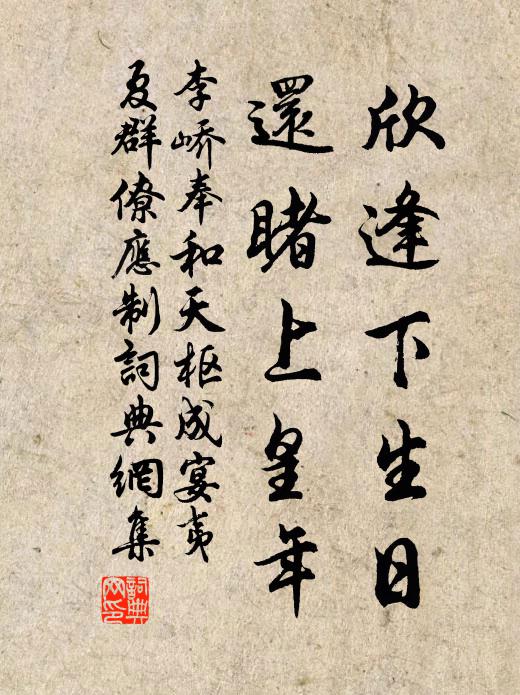 欣逢下生日
還睹上皇年
李嶠奉和天枢成宴夷
夏群僚應制詞典網集
詞典网印